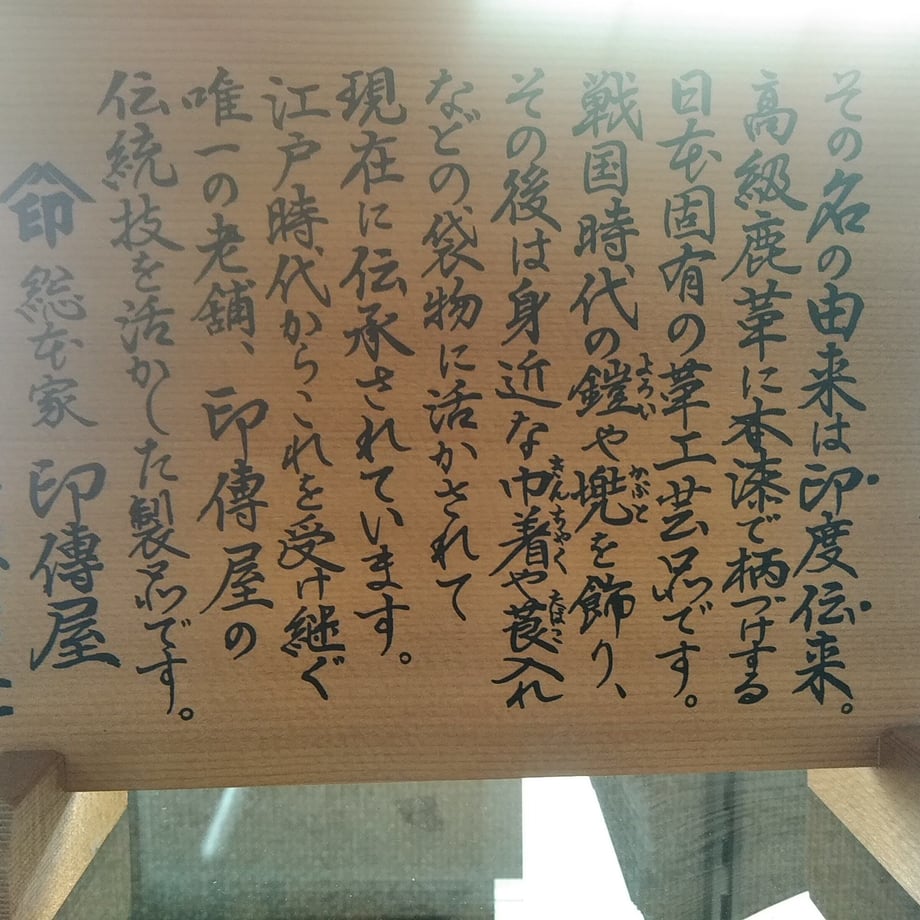 その名の由来は印度伝来。
高級鹿革に本漆で柄づけする
日本固有の革工芸品です。
戦国時代の鎧や兜を飾り、
よろい
かぶと
その後は身近な巾着や莨入れ
きんちゃく
たばこ
などの、袋物に活かされて
現在に伝承されています。
江戸時代からこれを受け継ぐ
唯一の老舗、印傳屋の
伝統技を活かした製品です。
印 総本家 印傳屋